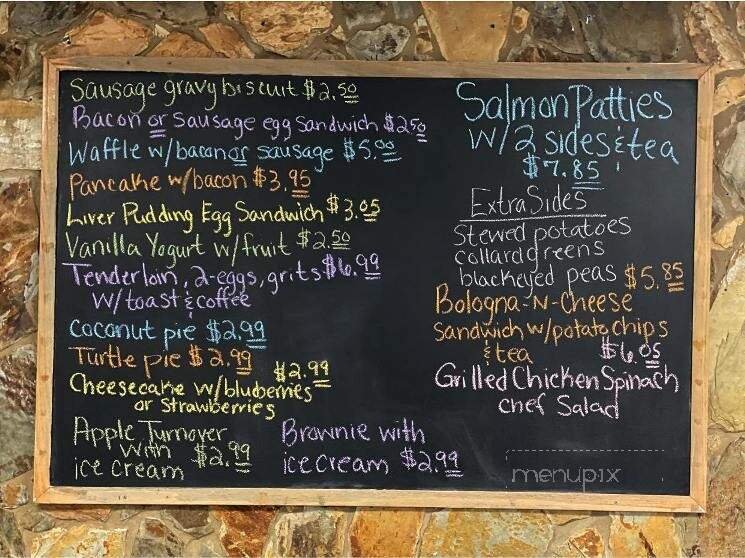 Sausage gravy biscuit $2.50
Bacon or sausage egg sandwich $2.50
Waffle w/bacon or sausage $5.00
Pancake w/bacon $3.95
Liver Pudding Egg Sandwich $3.05
Vanilla Yogurt w/fruit $2.50
Tenderloin, 2-eggs, grits $6.99
w/toast & coffee
coconut pie $2.99
Turtle pie $2.99
Cheesecake w/bluberries $2.99
or Strawberries
Apple Turnover
with
ice cream $2.99
Brownie with
ice cream $2.99
Salmon Patties
w/2 sides & tea
$7.85
Extra Sides
Stewed potatoes
collard greens
blackeyed peas
Bologna-N-Cheese $5.85
sandwich w/potato chips
& tea
$6.05
Grilled Chicken Spinach
chef Salad
menupix